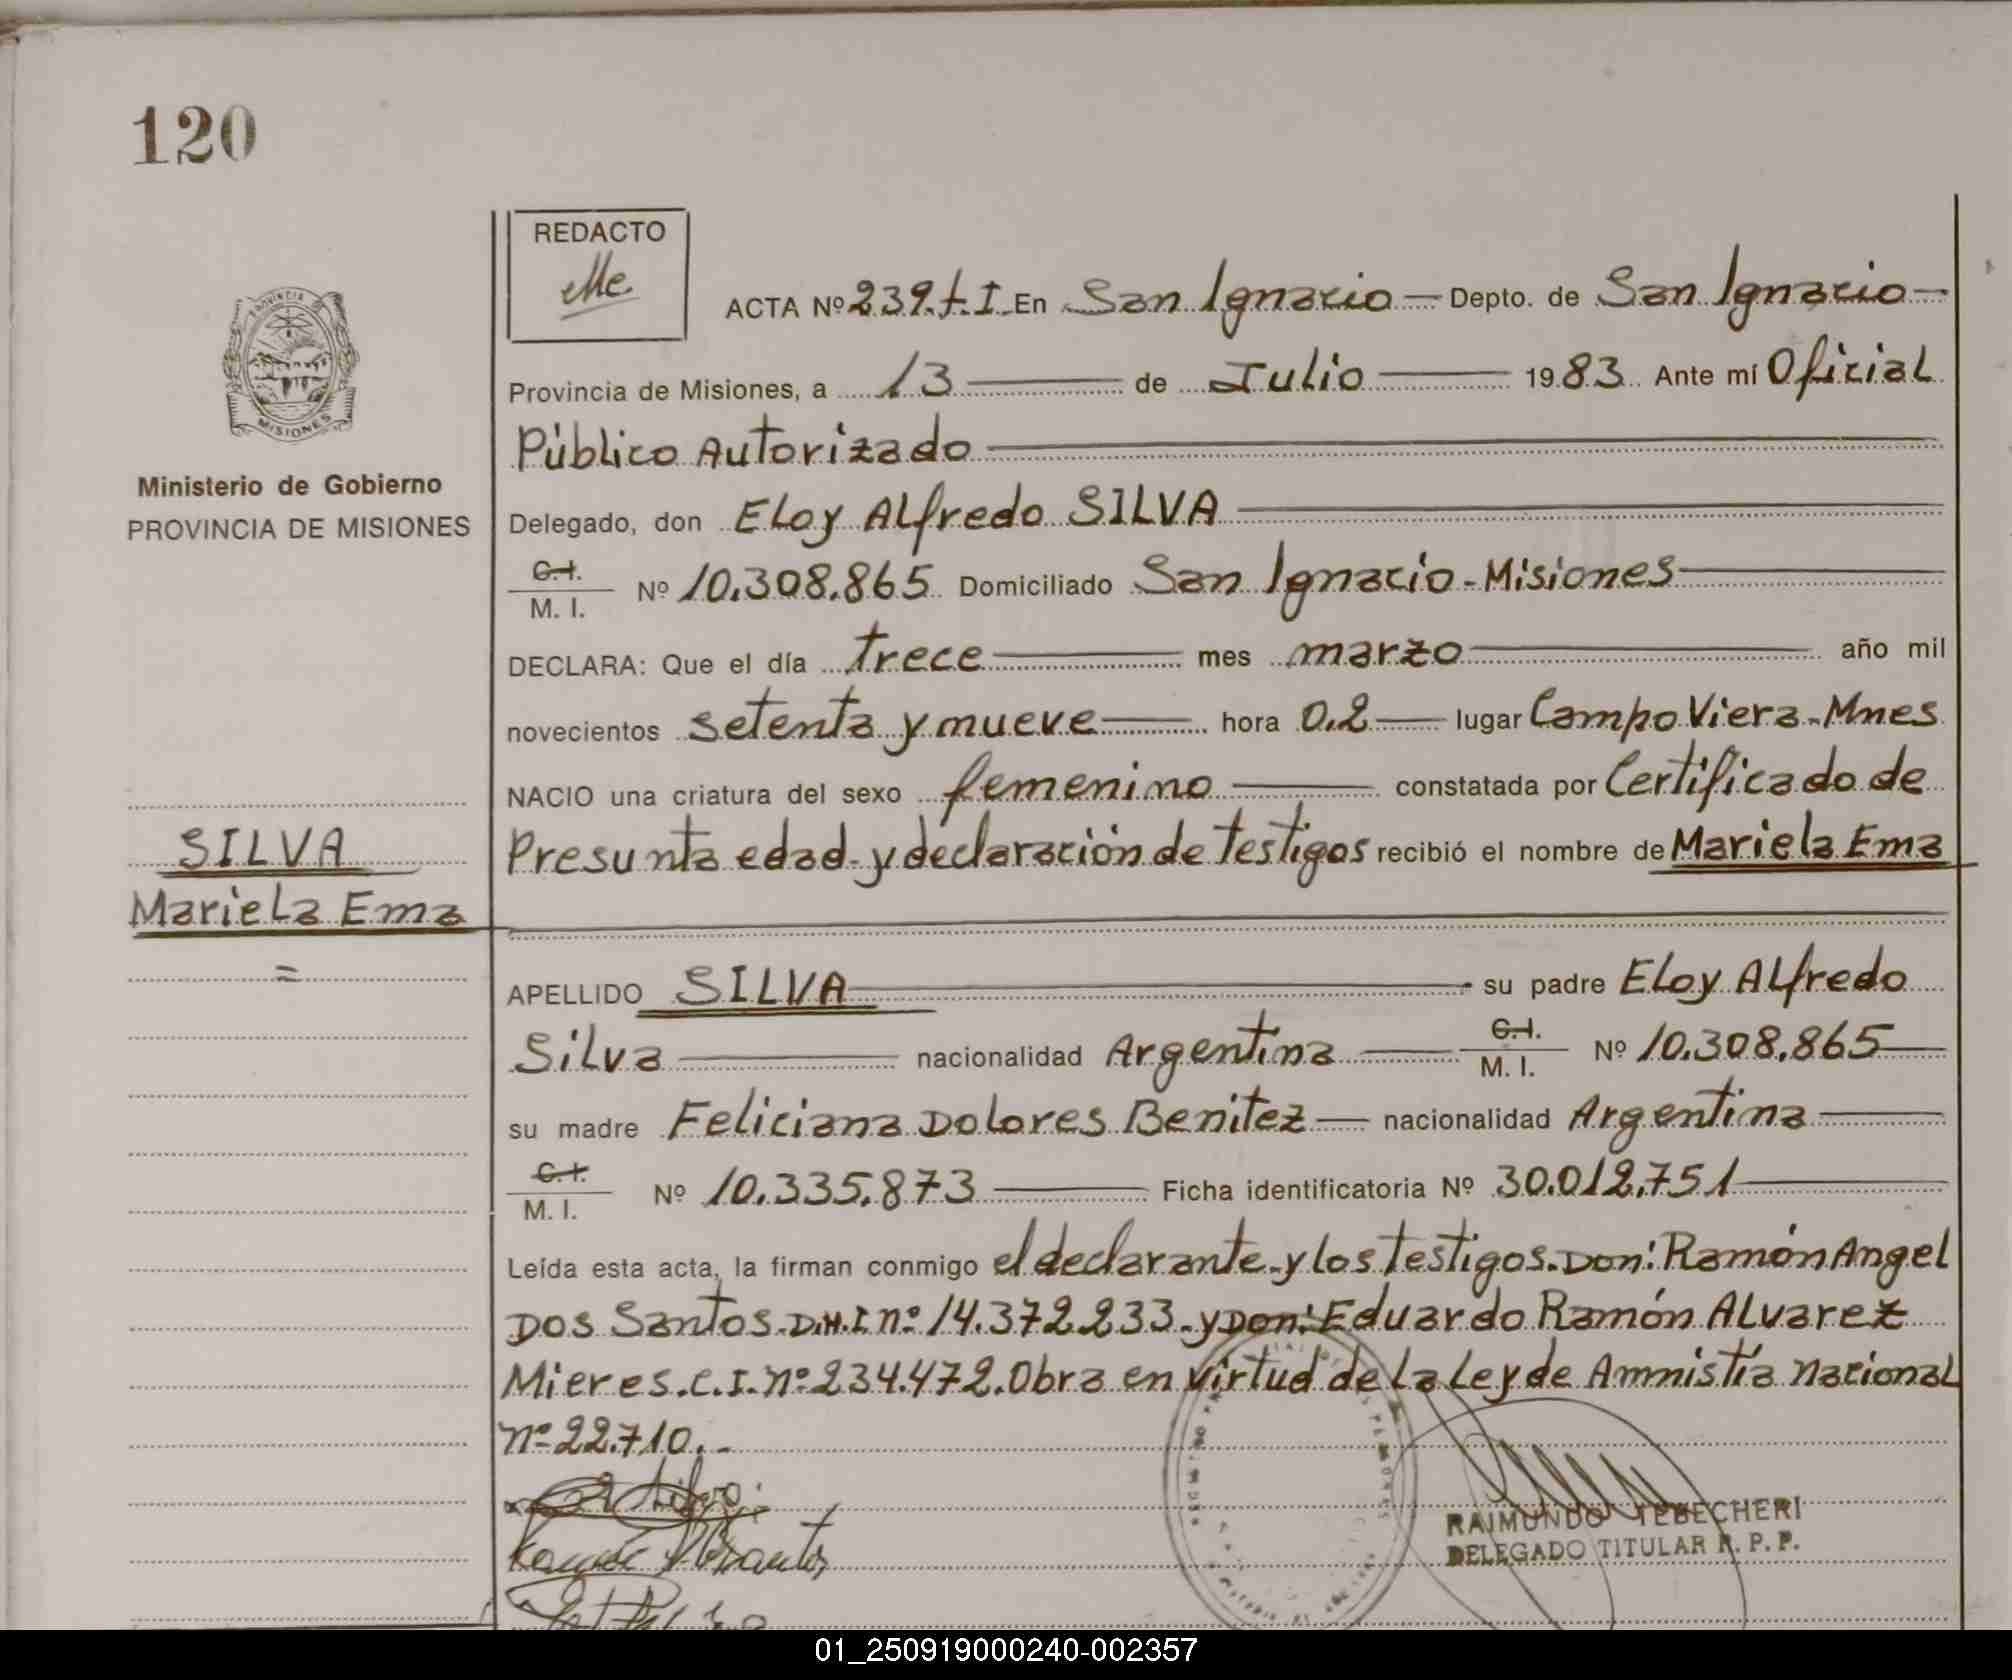 120
REDACTO
Me
ACTA Nº 239.t.I. En San Ignacio — Depto. de San Ignacio —
Provincia de Misiones, a 13 — de Julio — 1983. Ante mí Oficial
Público Autorizado
Ministerio de Gobierno
PROVINCIA DE MISIONES
Delegado, don Eloy Alfredo SILVA
C.I. / M. I. Nº 10.308.865 Domiciliado San Ignacio - Misiones
DECLARA: Que el día trece — mes marzo — año mil
novecientos setenta y nueve — hora 0.2 — lugar Campo Viera - Mnes
NACIO una criatura del sexo femenino — constatada por Certificado de
Presunta edad y declaración de testigos recibió el nombre de Mariela Ema
SILVA
Mariela Ema
=
APELLIDO SILVA — su padre Eloy Alfredo
Silva — nacionalidad Argentina — C.I. / M. I. Nº 10.308.865 —
su madre Feliciana Dolores Benitez — nacionalidad Argentina —
C.I. / M. I. Nº 10.335.873 — Ficha identificatoria Nº 30.012.751 —
Leída esta acta, la firman conmigo el declarante y los testigos. Don: Ramón Angel
Dos Santos. D.N.I nº 14.372.233. y Don: Eduardo Ramón Alvarez
Mieres. C.I. nº 234.472. Obra en virtud de la Ley de Amnistía Nacional
nº 22.710. -
RAIMUNDO TEBECHERI
DELEGADO TITULAR R. P. P.
01_250919000240-002357